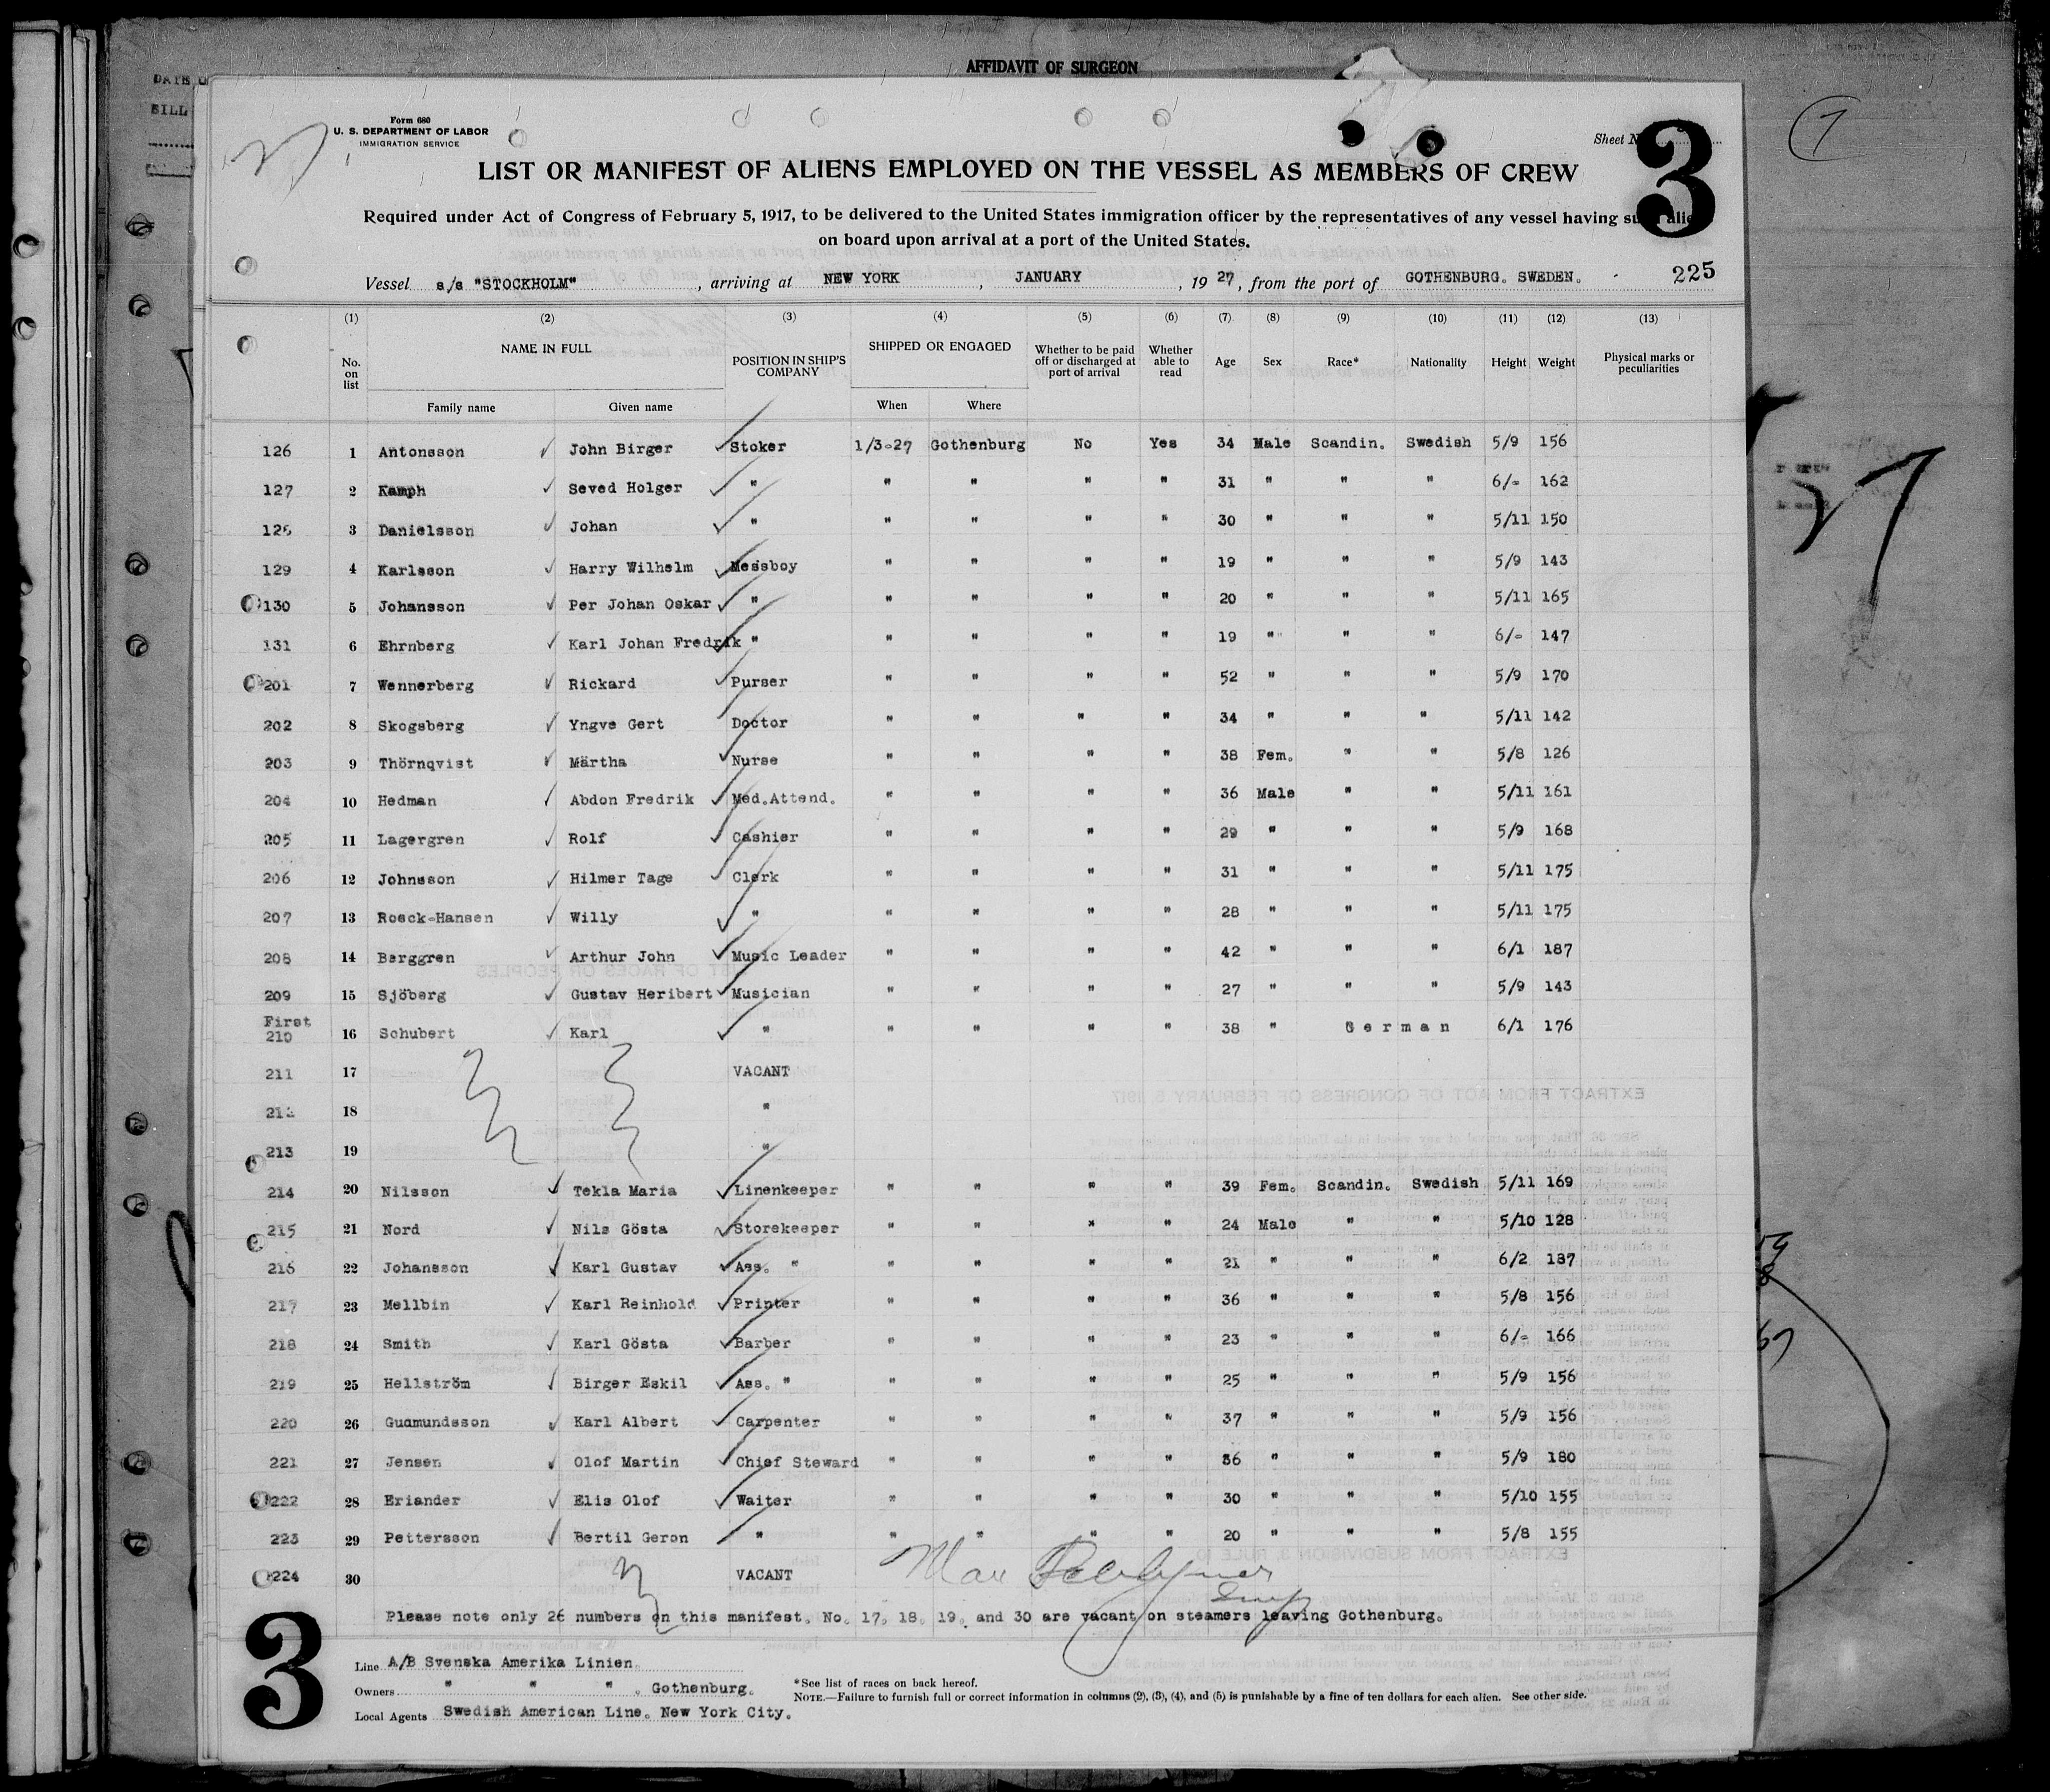 AFFIDAVIT OF SURGEON
Form 680
U. S. DEPARTMENT OF LABOR
IMMIGRATION SERVICE
Sheet
3
LIST OR MANIFEST OF ALIENS EMPLOYED ON THE VESSEL AS MEMBERS OF CREW
Required under Act of Congress of February 5, 1917, to be delivered to the United States immigration officer by the representatives of any vessel having
on board upon arrival at a port of the United States.
Vessel s/s "STOCKHOLM", arriving at NEW YORK, JANUARY, 1927, from the port of GOTHENBURG. SWEDEN. 225
(1) (2) (3) (4) (5) (6) (7) (8) (9) (10) (11) (12) (13)
No. on list NAME IN FULL POSITION IN SHIP'S COMPANY SHIPPED OR ENGAGED Whether to be paid off or discharged at port of arrival Whether able to read Age Sex Race* Nationality Height Weight Physical marks or peculiarities
Family name Given name When Where
126 1 Antonsson John Birger Stoker 1/3-27 Gothenburg No Yes 34 Male Scandin. Swedish 5/9 156
127 2 Kamph Seved Holger " " " " " 31 " " " 6/- 162
128 3 Danielsson Johan " " " " " 30 " " " 5/11 150
129 4 Karlsson Harry Wilhelm Messboy " " " " 19 " " " 5/9 143
130 5 Johansson Per Johan Oskar " " " " " 20 " " " 5/11 165
131 6 Ehrnberg Karl Johan Fredrik " " " " " 19 " " " 6/- 147
201 7 Wennerberg Rickard Purser " " " " 52 " " " 5/9 170
202 8 Skogsberg Yngve Gert Doctor " " " " 34 " " " 5/11 142
203 9 Thörnqvist Märtha Nurse " " " " 38 Fem. " " 5/8 126
204 10 Hedman Abdon Fredrik Med.Attend. " " " " 36 Male " " 5/11 161
205 11 Lagergren Rolf Cashier " " " " 29 " " " 5/9 168
206 12 Johnsson Hilmer Tage Clerk " " " " 31 " " " 5/11 175
207 13 Roeck-Hansen Willy " " " " " 28 " " " 5/11 175
208 14 Berggren Arthur John Music Leader " " " " 42 " " " 6/1 187
209 15 Sjöberg Gustav Heribert Musician " " " " 27 " " " 5/9 143
First
210 16 Schubert Karl " " " " " 38 " German 6/1 176
211 17 VACANT
212 18 "
213 19 "
214 20 Nilsson Tekla Maria Linenkeeper " " " " 39 Fem. Scandin. Swedish 5/11 169
215 21 Nord Nils Gösta Storekeeper " " " " 24 Male " " 5/10 128
216 22 Johansson Karl Gustav Ass. " " " " " 21 " " " 6/2 187
217 23 Mellbin Karl Reinhold Printer " " " " 36 " " " 5/8 156
218 24 Smith Karl Gösta Barber " " " " 23 " " " 6/- 166
219 25 Hellström Birger Eskil Ass. " " " " " 25 " " " 5/9 156
220 26 Gudmundsson Karl Albert Carpenter " " " " 37 " " " 5/9 156
221 27 Jensen Olof Martin Chief Steward " " " " 36 " " " 5/9 180
222 28 Eriander Elis Olof Waiter " " " " 30 " " " 5/10 155
223 29 Pettersson Bertil Geron " " " " " 20 " " " 5/8 155
224 30 VACANT
Please note only 26 numbers on this manifest. No. 17. 18. 19. and 30 are vacant on steamers leaving Gothenburg.
3
Line A/B Svenska Amerika Linien.
Owners " " " . Gothenburg.
Local Agents Swedish American Line. New York City.
*See list of races on back hereof.
NOTE.—Failure to furnish full or correct information in columns (2), (3), (4), and (5) is punishable by a fine of ten dollars for each alien. See other side.